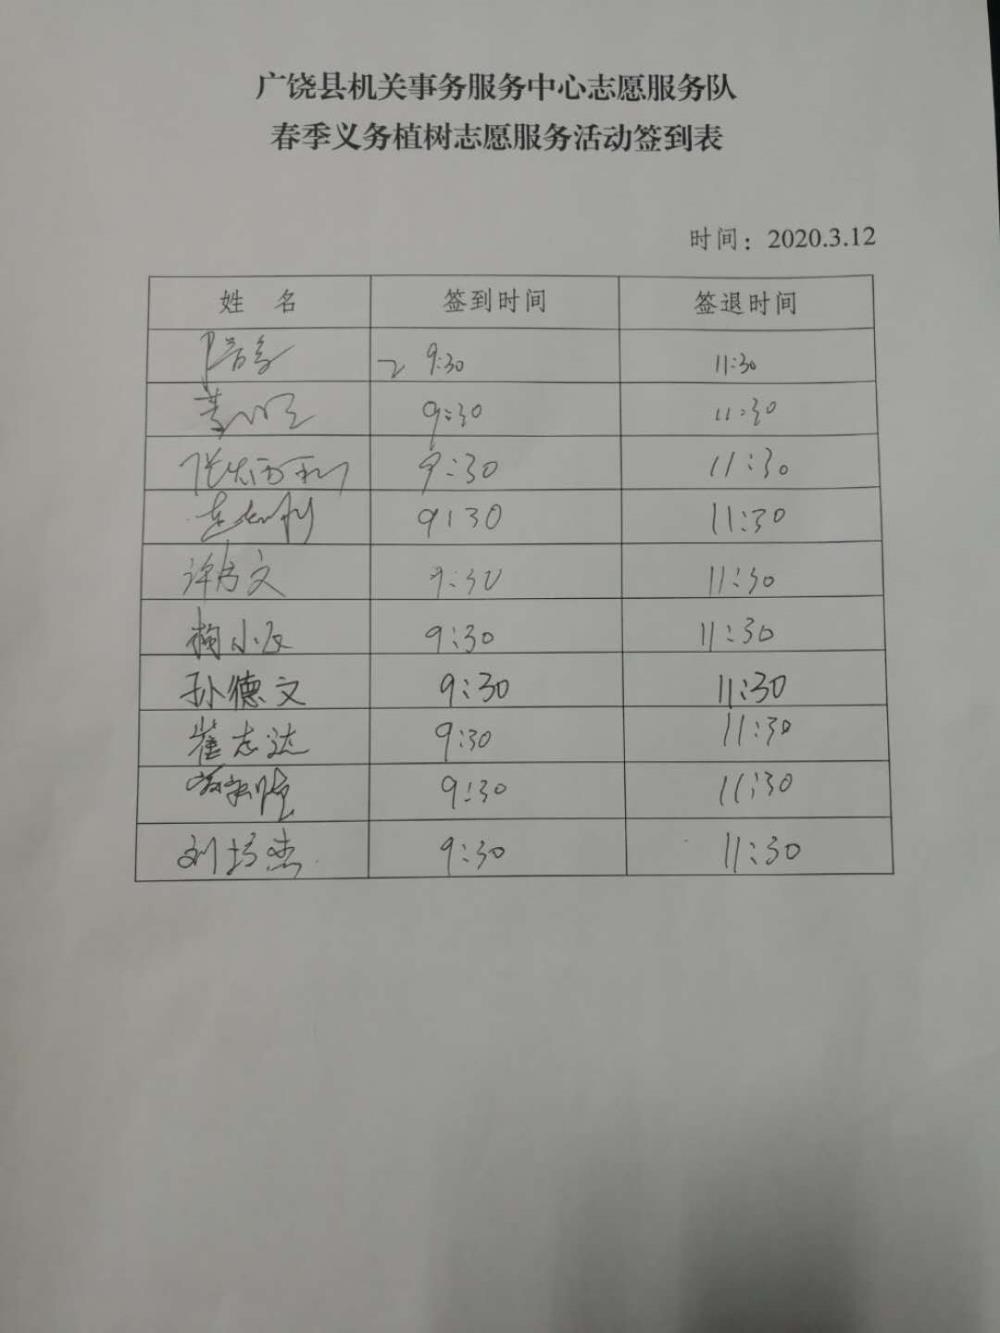 广饶县机关事务服务中心志愿服务队
春季义务植树志愿服务活动签到表
时间：2020.3.12
姓 名 签到时间 签退时间
9:30 11:30
9:30 11:30
9:30 11:30
9:30 11:30
许 文 9:30 11:30
小 9:30 11:30
孙德文 9:30 11:30
崔志达 9:30 11:30
9:30 11:30
刘 杰 9:30 11:30